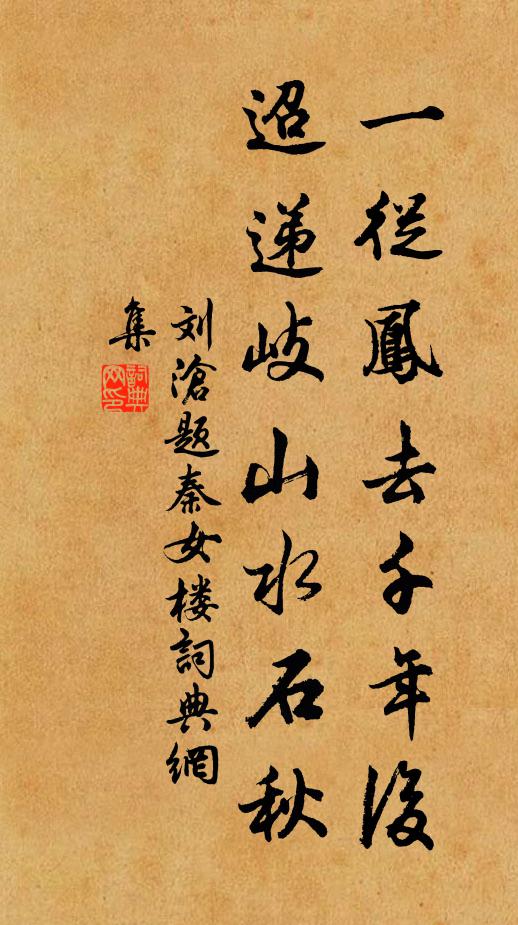 一從鳳去千年後
迢遞岐山水石秋
刘滄題秦女楼詞典網
集
詞典网印